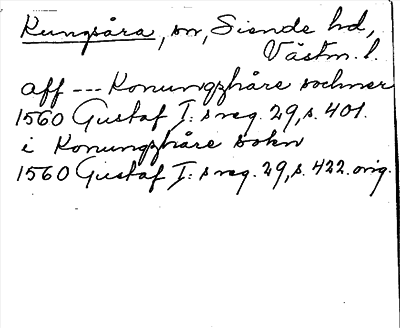 Kungsåra, sn, Siende hd,
Västm. l.
aff --- Konungzhåre sochner
1560 Gustaf I: s reg. 29, s. 401.
i Konungzhåre sokn
1560 Gustaf I: s reg. 29, s. 422. orig.